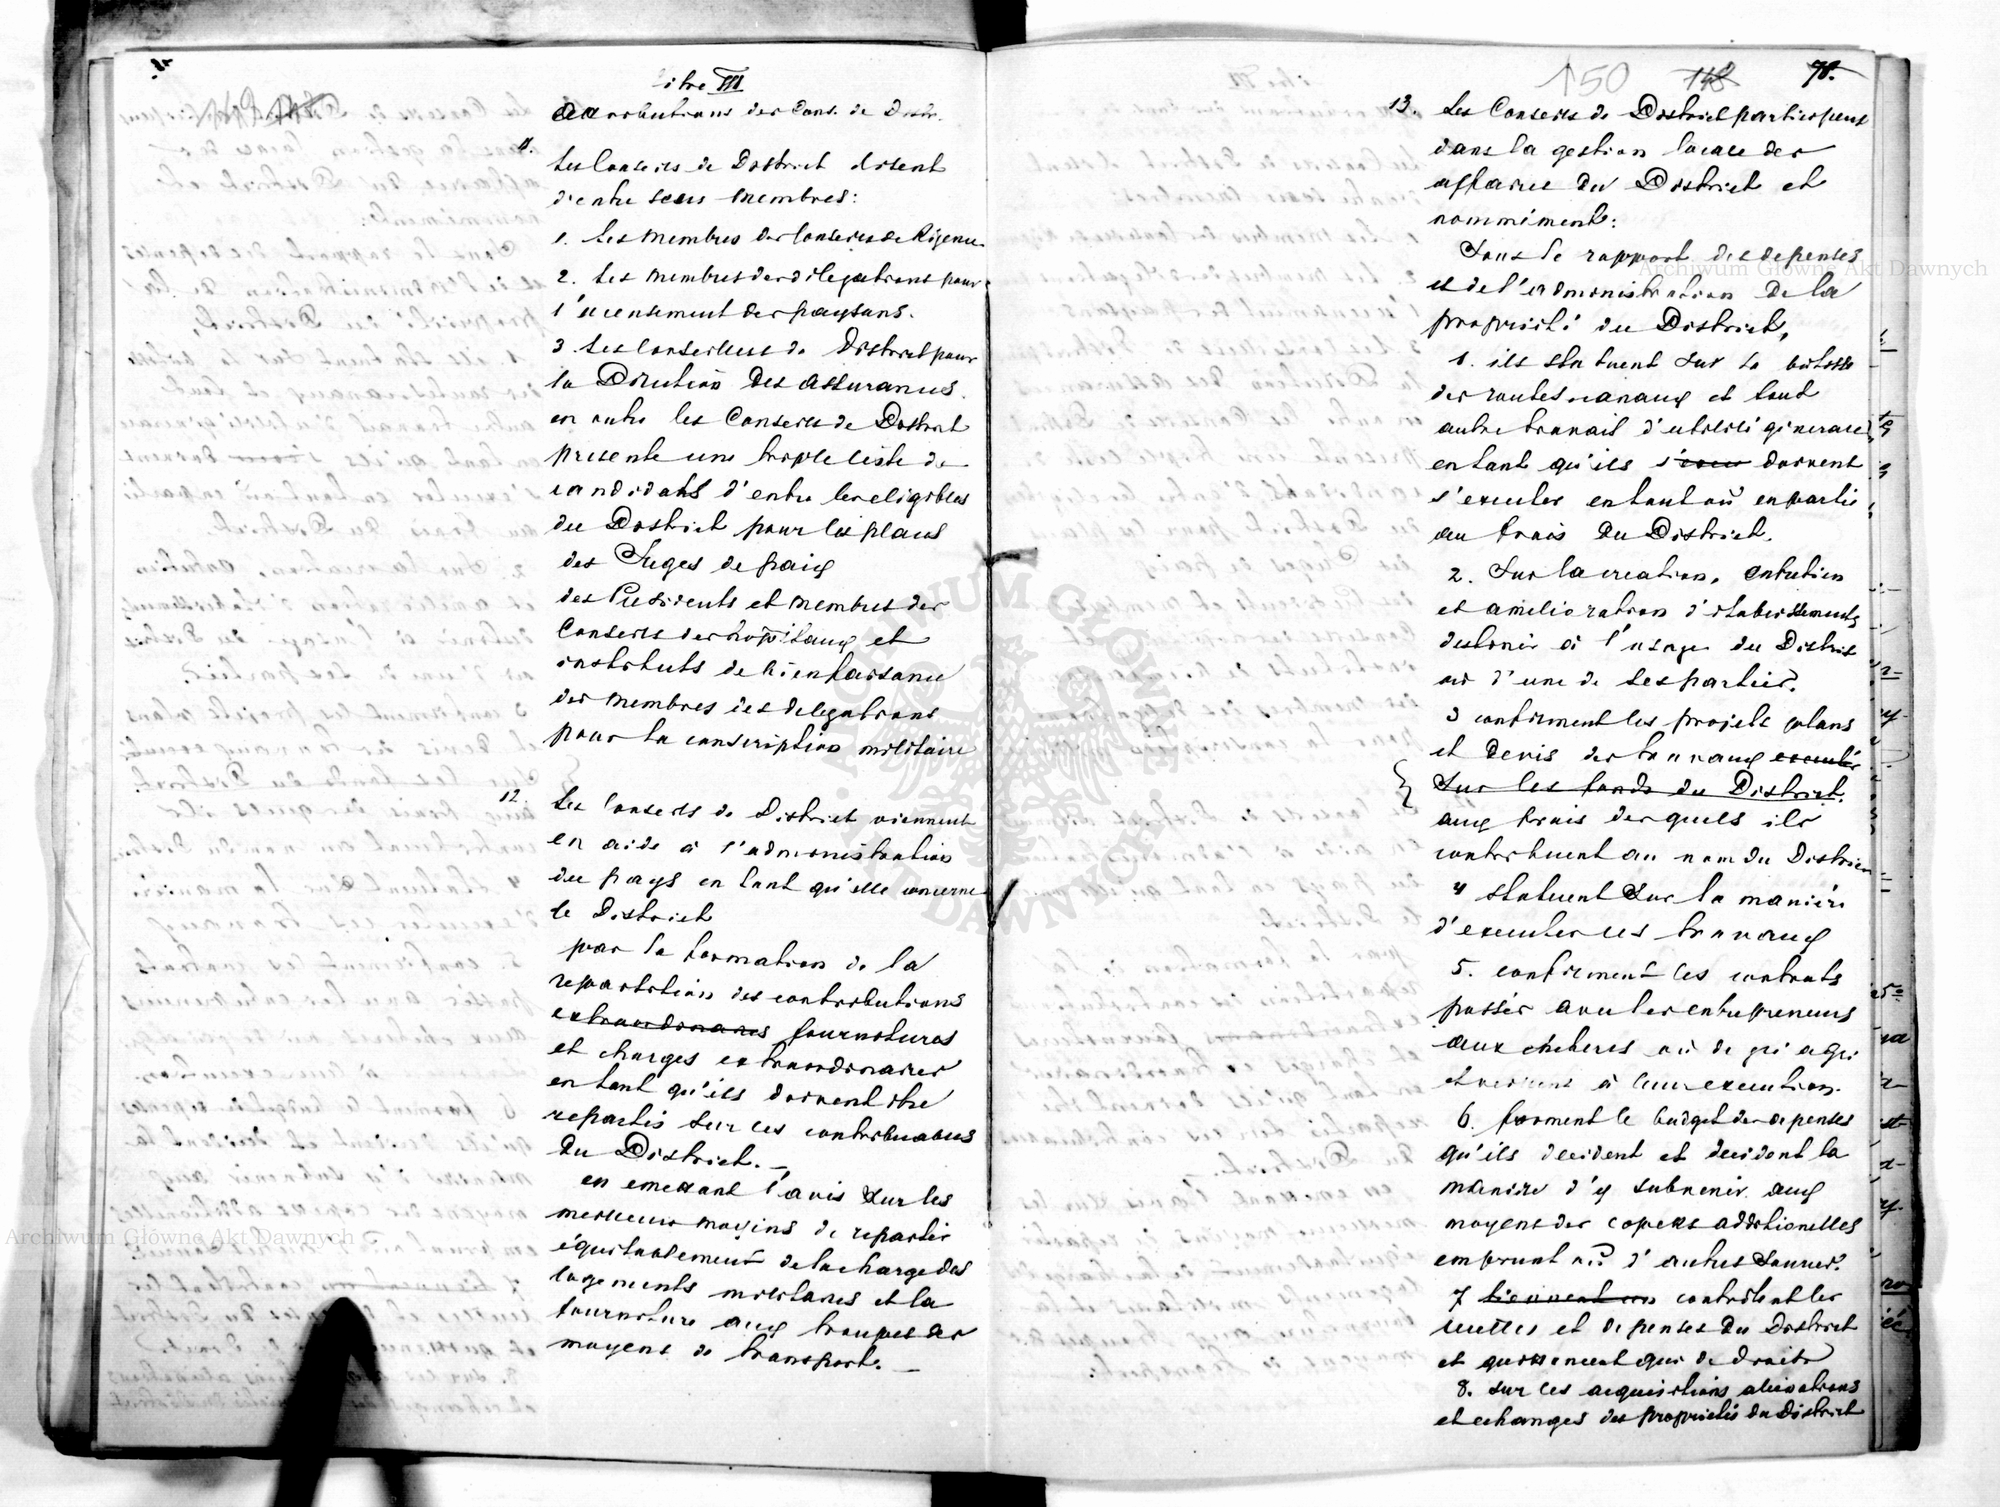 Titre III
Attributions des Cons. de Distr.
11.
Les Conseils de District elisent
d'entre leurs membres:
1. Les membres des Conseils de Régence
2. Les membres des délegations pour
l'acensement des paysans.
3 Les Conseillers de District pour
la Direction des assurances.
en outre les Conseils de District
presente une triple liste de
candidats d'entre les eligibles
du District pour les places
des Juges de paix
des Presidents et membres des
Conseils des hopitaux et
instituts de bienfaisance
des membres des delegations
pour la conscription militaire
12.
Les Conseils de District viennent
en aide à l'administration
du pays en tant qu'elle concerne
le District
par la formation de la
repartition des contributions
extraordinaires fournitures
et charges extraordinaires
en tant qu'ils doivent être
repartis sur les contribuables
du District. —
en emettant l'avis sur les
meilleurs moyins de repartir
équitablement de la charge des
logements militaires et la
fourniture aux troupes des
moyens de transport. —
150 148 78.
13.
Les Conseils de District participent
dans la gestion locale des
affaires du District et
nommément:
Sous le rapport des depenses
et de l'administration de la
proprieté du District,
1. ils statuent sur la batisse
des routes, canaux et tout
autre travail d'utilité générale
en tant qu'ils doivent
s'executer en tout où en partie
au frais du District.
2. Sur la creation, entretien
et amelioration d'etablissements
destinés à l'usage du District
où d'une de ses parties.
3 confirment les projets plans
et devis des travaux executés
sur les fonds du District.
aux frais desquels ils
contribuent au nom du District
4 statuent sur la maniére
d'executer ces travaux
5. confirment les contrats
passés avec les entrepreneurs
aux encheres où de gré a gré
et veillent à leur execution.
6. forment le budget des depenses
qu'ils decident et decident la
maniere d'y subvenir aux
moyens des copeks additionelles
emprunt où d'autres sources.
7 tiennent controlent les
recettes et depenses du District
et quittancent qui de droit
8. sur les acquisitions alienations
et echanges des proprietés du District
Archiwum Główne Akt Dawnych
Archiwum Główne Akt Dawnych
ARCHIWUM GŁÓWNE
AKT DAWNYCH